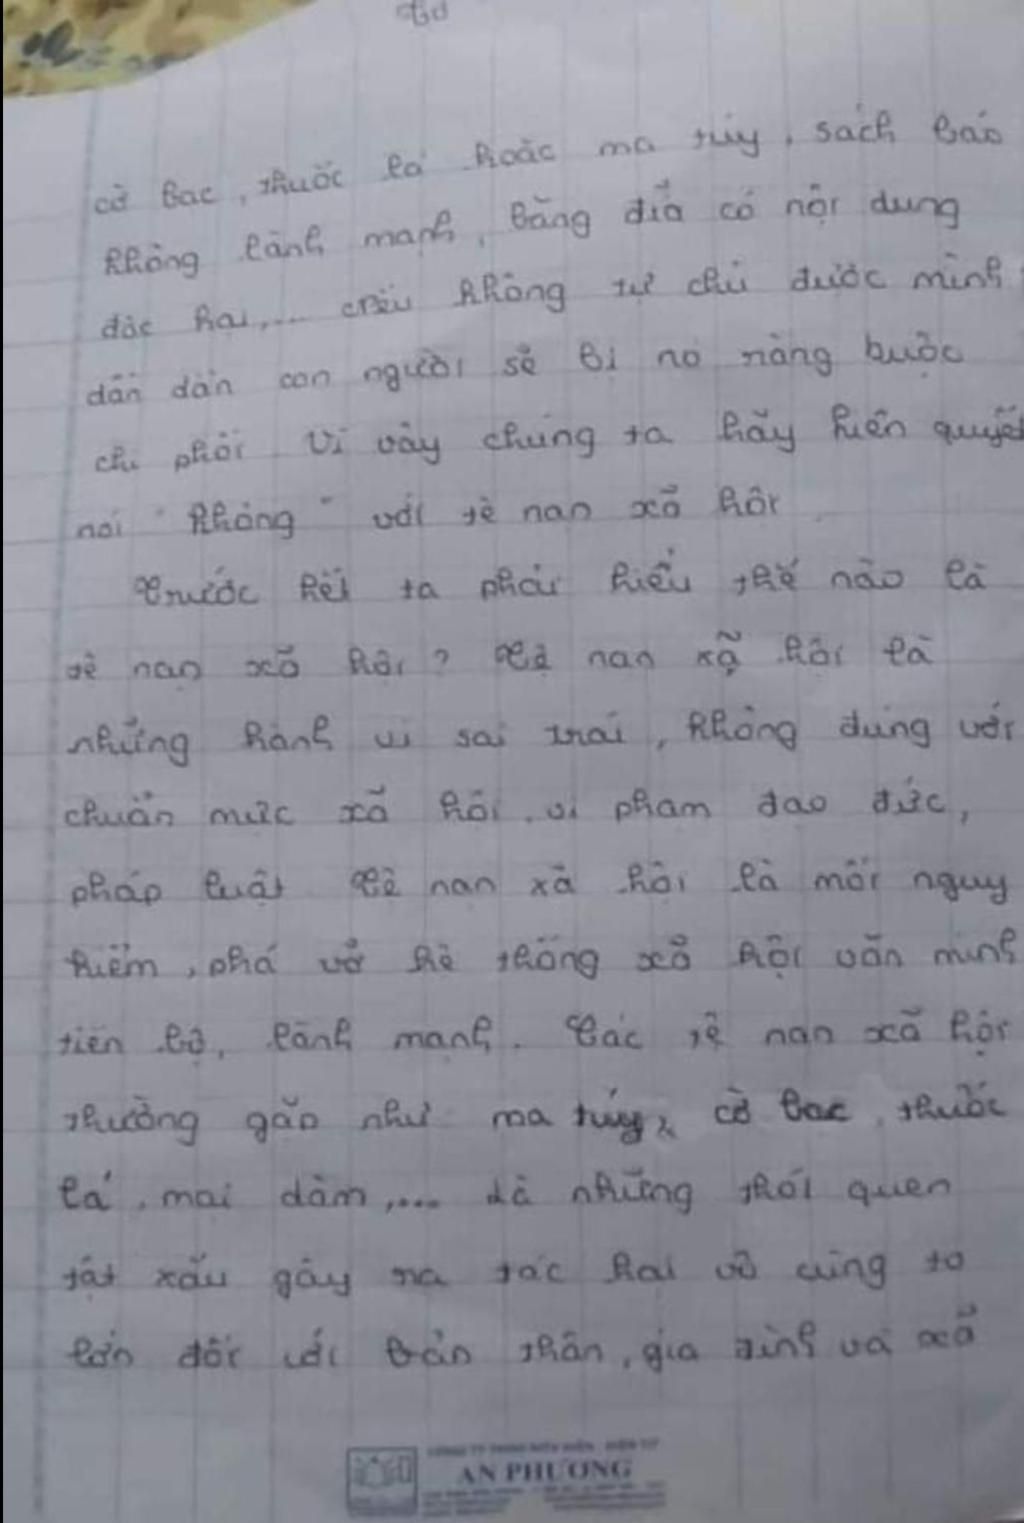 cờ bạc, thuốc lá hoặc ma túy, sách báo
không lành mạnh, băng đĩa có nội dung
độc hại,... nếu không tự chủ được mình
dần dần con người sẽ bị nó ràng buộc
chi phối Vì vậy chúng ta hãy kiên quyết
nói "không" với tệ nạn xã hội
Trước hết ta phải hiểu thế nào là
tệ nạn xã hội? Tệ nạn xã hội là
những hành vi sai trái, không đúng với
chuẩn mực xã hội, vi phạm đạo đức,
pháp luật Tệ nạn xã hội là mối nguy
hiểm, phá vỡ hệ thống xã hội văn minh
tiến bộ, lành mạnh. Các tệ nạn xã hội
thường gặp như ma túy, cờ bạc, thuốc
lá, mại dâm,.... là những thói quen
tật xấu gây ra tác hại vô cùng to
lớn đối với bản thân, gia đình và xã
AN PHƯƠNG